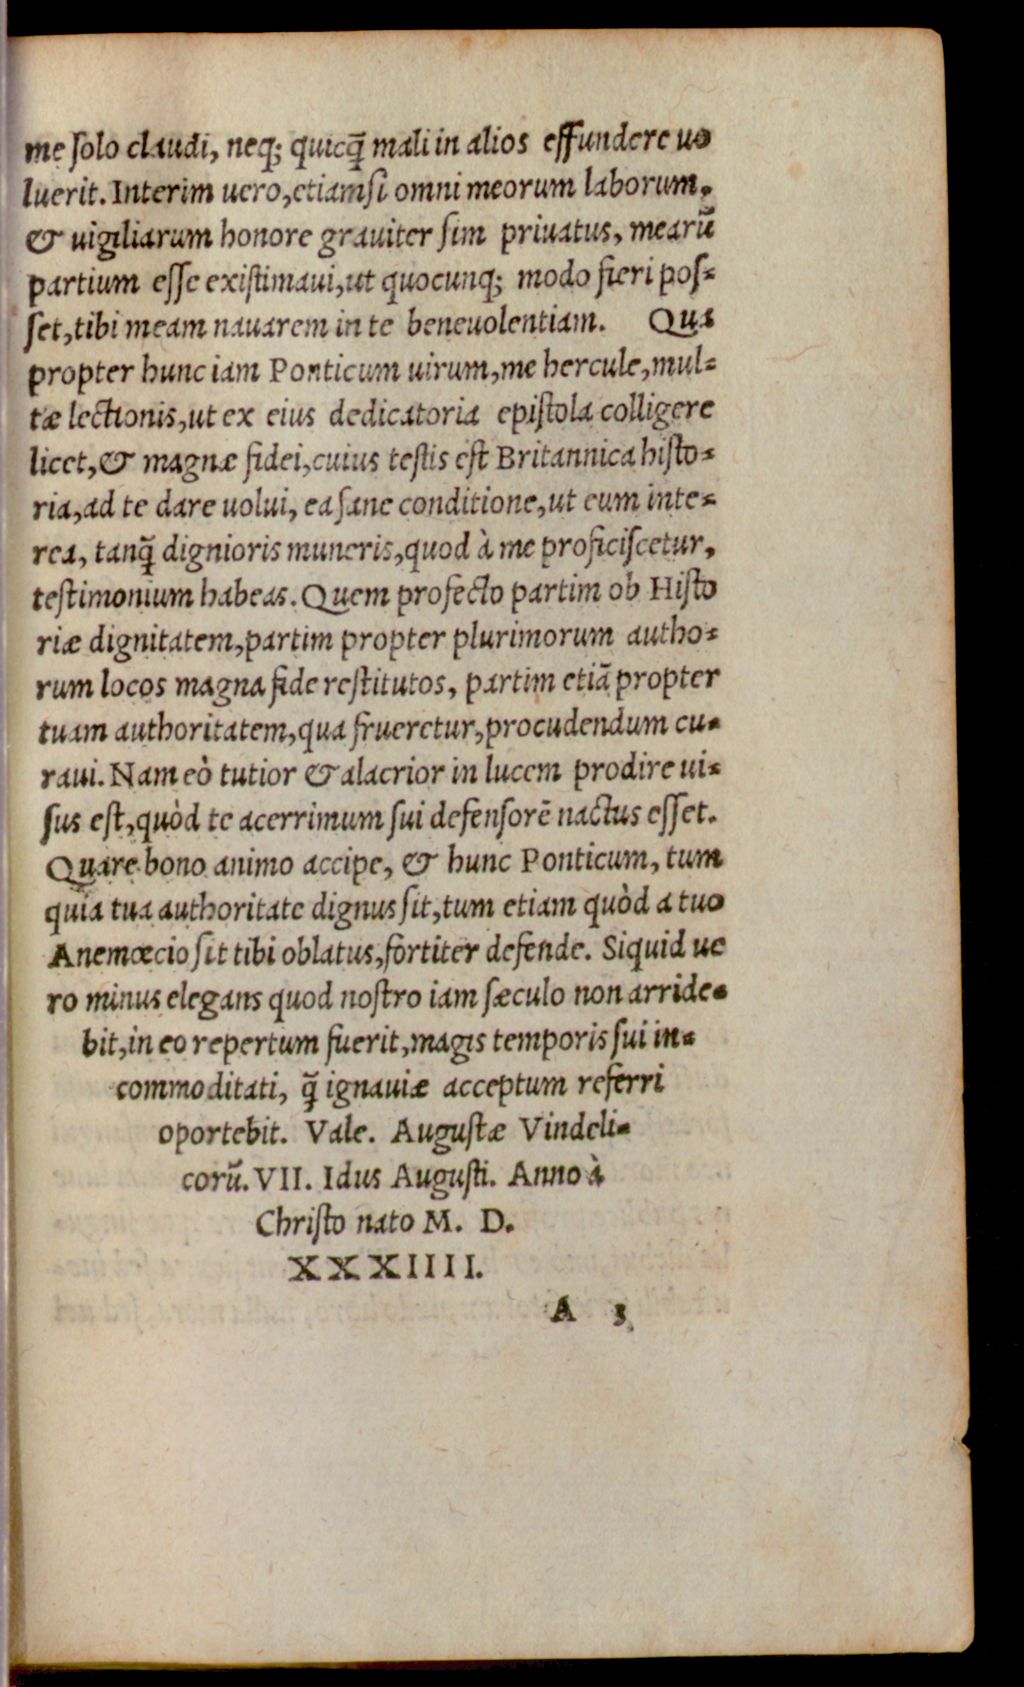 me ſolo claudi, neq; quicq̃ mali in alios effundere uo
luerit. Interim uero, etiamſi omni meorum laborum,
& uigiliarum honore grauiter ſim priuatus, mearũ
partium eſſe existimaui, ut quocunq; modo fieri poſ-
ſet, tibi meam nauarem in te beneuolentiam. Qua
propter hunc iam Ponticum uirum, me hercule, mul-
tæ lectionis, ut ex eius dedicatoria epiſtola colligere
licet, & magnæ fidei, cuius teſtis eſt Britannica hiſto-
ria, ad te dare uolui, ea ſane conditione, ut eum inte-
rea, tanq̃ dignioris muneris, quod à me proficiſcetur,
teſtimonium habeas. Quem profecto partim ob Hiſto
riæ dignitatem, partim propter plurimorum autho-
rum locos magna fide reſtitutos, partim etiã propter
tuam authoritatem, qua frueretur, procudendum cu-
raui. Nam eò tutior & alacrior in lucem prodire ui-
ſus eſt, quòd te acerrimum ſui defenſorẽ nactus eſſet.
Quare bono animo accipe, & hunc Ponticum, tum
quia tua authoritate dignus ſit, tum etiam quòd a tuo
Anemœcio ſit tibi oblatus, fortiter defende. Siquid ue
ro minus elegans quod noſtro iam ſæculo non arride-
bit, in eo repertum fuerit, magis temporis ſui in-
commoditati, q̃ ignauiæ acceptum referri
oportebit. Vale. Auguſtæ Vindeli-
corũ. VII. Idus Auguſti. Anno à
Chriſto nato M. D.
XXXIIII.
A 3